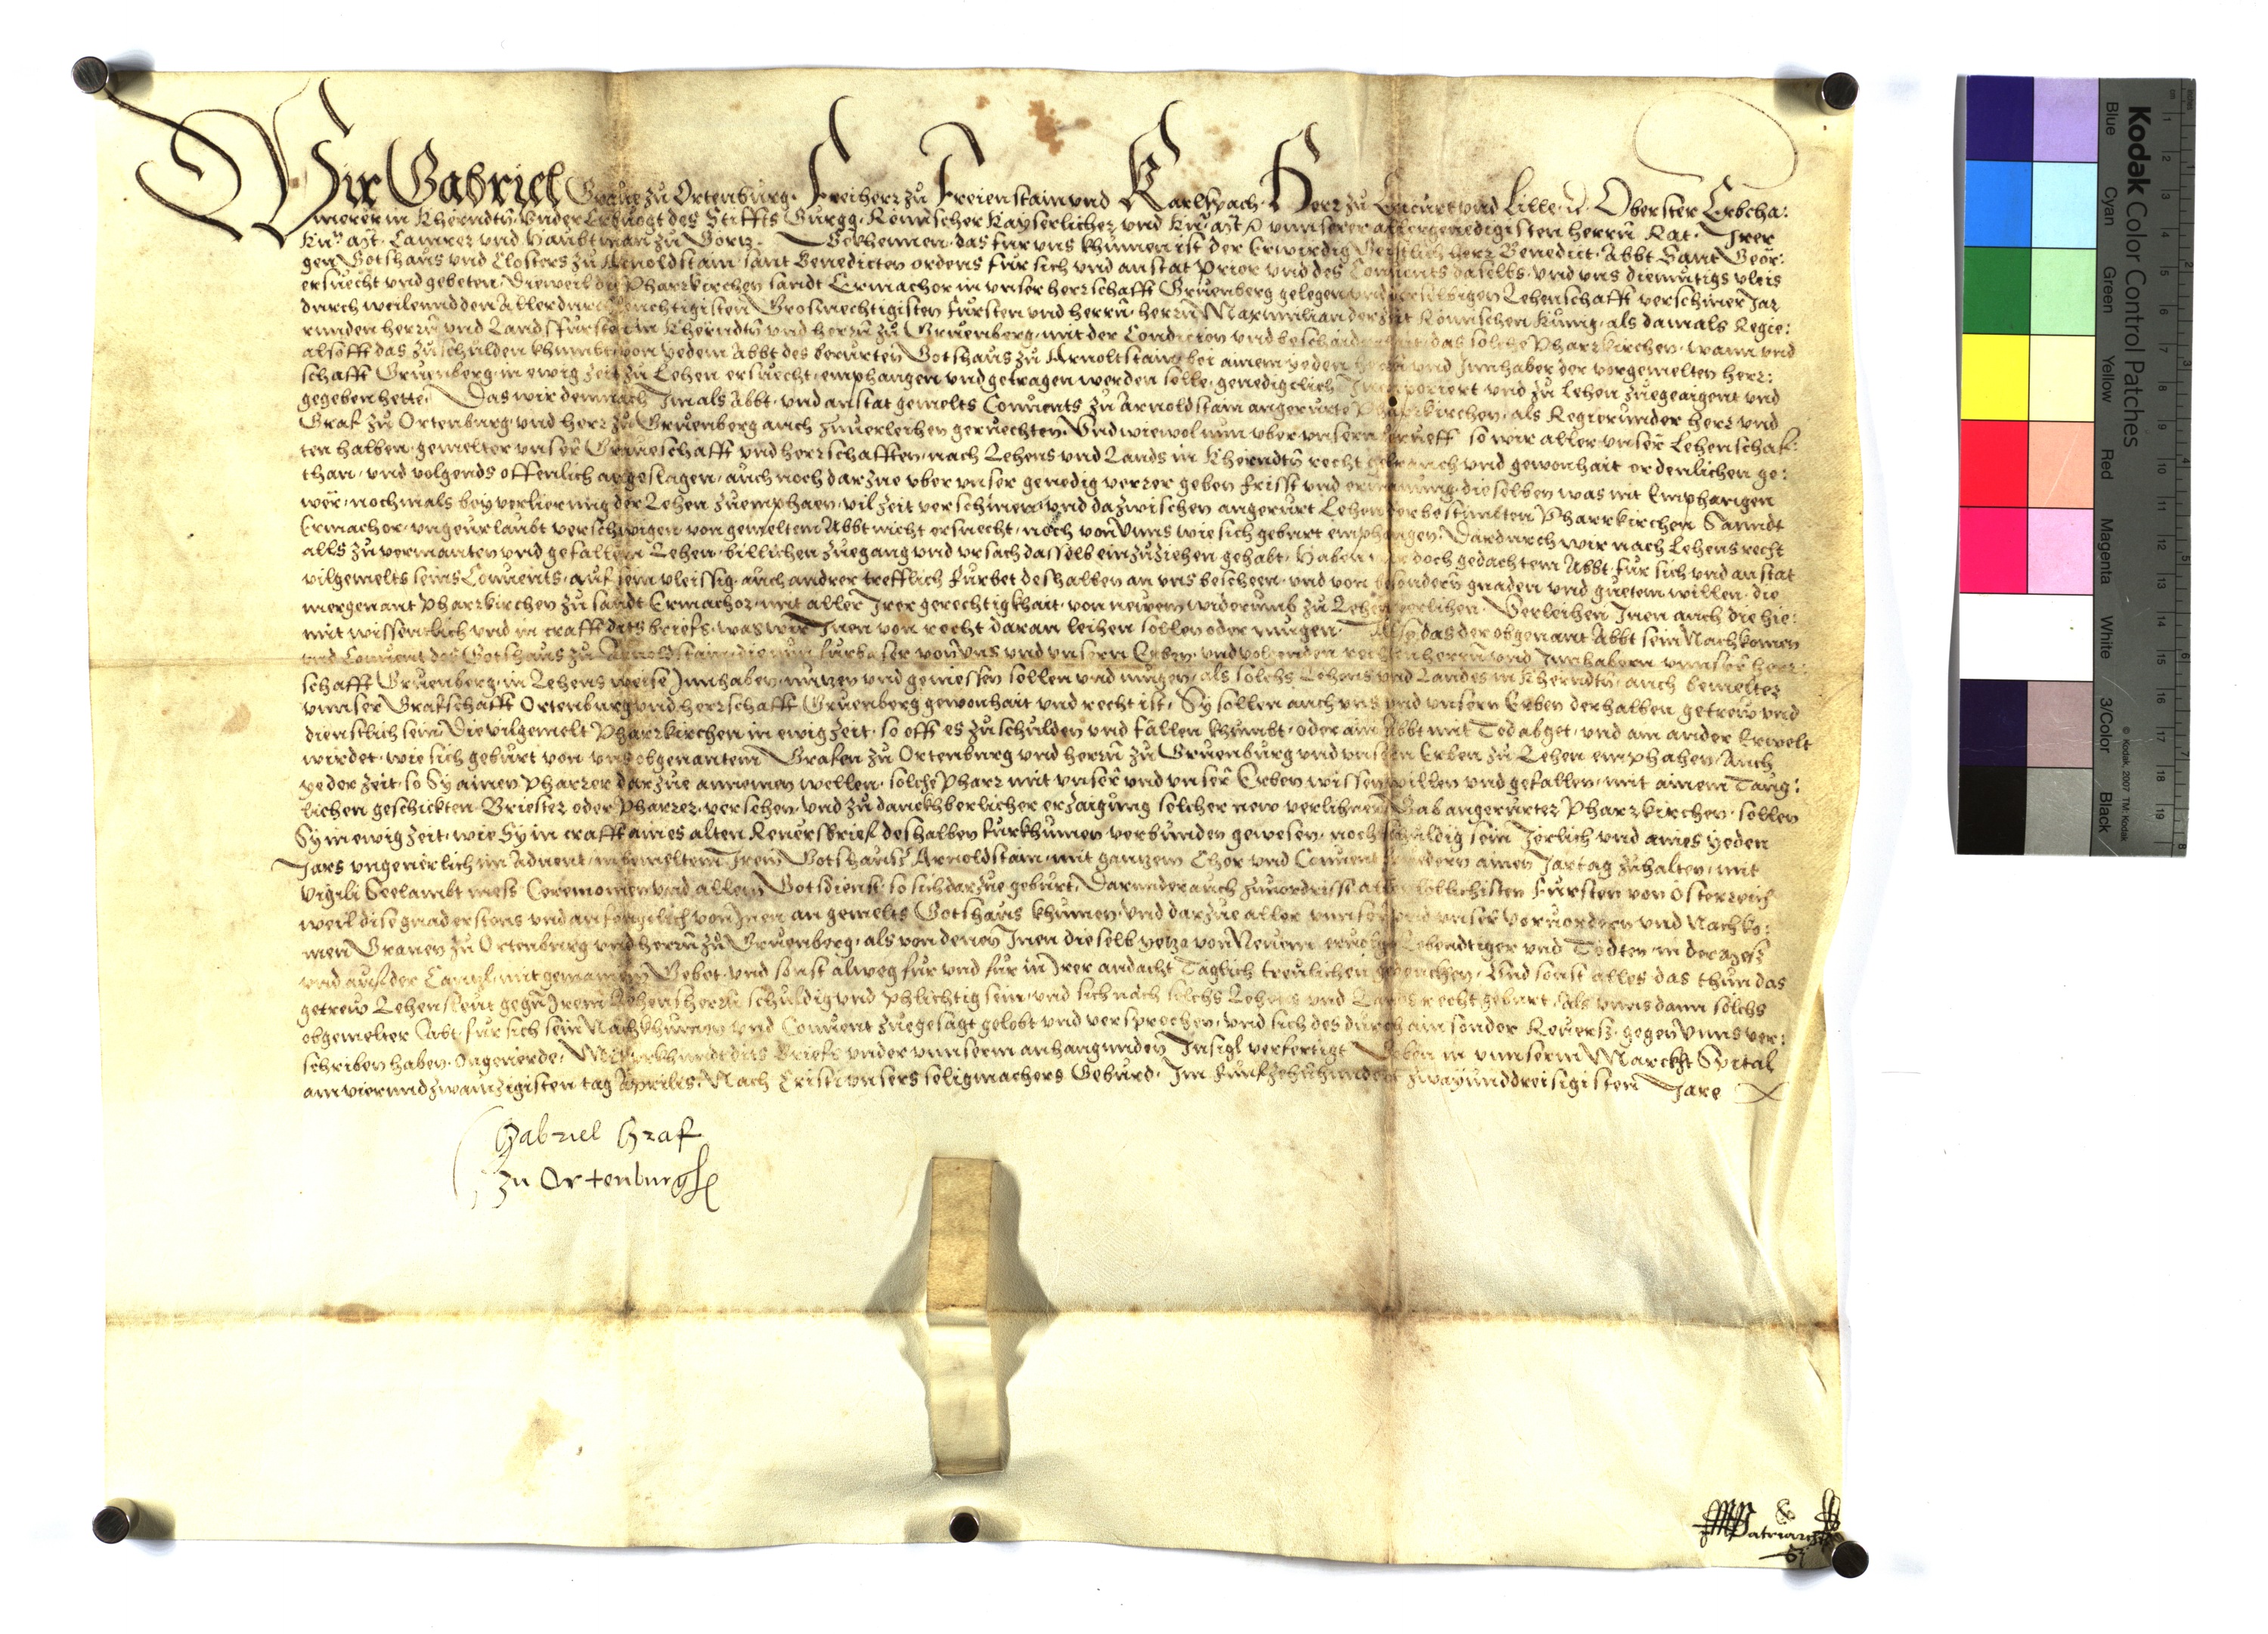 Wir Gabriel Graue zů Ortenburg. Freiherr zů Freienstain vnd Karlspach. Herr zů Encurt vnd Lille. Oberster Erbcha:
merer in Kherndtn. vnder Erbuogt des Stiffts Gurgg. Romischer Kayserlicher vnd vnnserer allergenedigisten herrn Rat.
Camrer vnd Haubtman zů Görtz. Bekhennen. das für vns khumen ist der Erwirdig Geistlich herr Benedict. Abbt Sant Geör:
gen Gotshaus vnd Closters zů Arnoldstain. sant Benedicten ordens für sich vnd anstat Prior vnd des Conuents daselbs. vnd vns diemütigs vleis
ersuecht vnd gebeten. Dieweil die Pharrkirchen sandt Ermachor in vnser herrschafft Gruenberg gelegen vnd derselbigen Lehenschafft verschiner Jar
durch weilennd den Allerdurchleuchtigisten Grosmechtigisten Fürsten vnd herrn. herrn Maximilian der zeit Römischen Künig. als damals Regie:
runden herrn vnd Landsfürsten in Kherndtn vnd herrn zů Gruenberg. mit der Condicion vnd beschaidenhait. das solche Pharrkirchen. wann vnd
alsofft das zů schulden khumbt von yedem Abbt des berürten Gotshaus zů Arnoltstain bei ainem yeden herrn vnd Innhaber der vorgemelten herr:
schafft Gruenberg. in ewig zeit zů Lehen ersuecht. emphangen vnd getragen werden solle. genedigclich Incorporiert vnd zů Lehen zuegeaigent vnd
gegeben hette. Das wir demnach Im als Abbt. vnd anstat gemelts Conuents zů Arnoldstain angerürte Pharrkirchen. als Regierunder herr vnd
Graf zů Ortenburg vnd herr zů Gruenberg auch zuuerleihen geruechten. Vnd wiewol nun vber vnsern berueff so wir aller vnser Lehenschaf:
ten halben. gemelter vnser Graueschafft vnd herrschafften. nach Lehens vnd Lands in Kherndtn recht gebrauch vnd gewonhait ordenlichen ge:
than. vnd volgends offenlich angeslagen. auch noch darzue vber vnser genedig verrer geben frisst vnd ermanung. dieselben was nit Emphangen
wer. nochmals bey verlierung der Lehen zuemphaen. vil zeit verschinen. vnd dazwischen angerürt Lehen der bestimlten Pharrkirchen Sanndt
Ermachor. vngeurlaubt verschwigen von gemeltem Abbt nicht ersuecht. noch von Vnns wie sich gebürt emphangen. Dardurch wir nach Lehens recht
alls zů vermanten vnd gefallnen Lehen. billichen zuegang vnd vrsach dasselb einzuziehen gehabt. Haben wir doch gedachtem Abbt. für sich vnd anstat
vilgemelts seins Conuents. auf sein vleissig. auch andrer trefflich fürbet deshalben an vns bescheen. vnd von besondern gnaden vnd guetem willen. die
mergenant Pharrkirchen zů sandt Ermachor. mit aller Irer gerechtigkhait. von newem widerumb zů Lehen verlihen. Verleihen Inen auch die hie:
mit wissentlich vnd in crafft dits briefs. was wir Inen von recht daran leihen sollen oder mügen. Also das der obgenant Abbt sein Nachkomen
vnd Conuent des Gotshaus zů Arnoldstain die nun fürbaser von vns vnd vnsern Erben. vnd volgenden rechten herrn vnd Innhabern vnnser herr:
schafft Gruenberg. in Lehens weise Innhaben. nutzen vnd geniessen sollen vnd mügen. als solchs Lehens vnd Landes in Kherndtn. auch bemelter
vnnser Grafschafft Ortenburg vnd herrschafft Gruenberg gewonhait vnd recht ist. Sy sollen auch vns vnd vnsern Erben derhalben getrew vnd
dienstlich sein. Die vilgemelt Pharrkirchen in ewig zeit. so offt es zů schulden vnd fällen khumbt. oder ain Abbt mit Tod abget. vnd ain ander Erwelt
wirdet. wie sich gebürt von vns obgenantem Grafen zů Ortenburg vnd herrn zů Gruenburg vnd vnsern Erben zů Lehen emphahen. Auch
yeder zeit. so Sy ainen Pharrer darzue annemen wellen. solche Pharr mit vnser vnd vnser Erben wissen willen vnd gefallen. mit ainem Taug:
lichen geschickten Briester oder Pharrer. versehen. vnd zů danckhberlicher erzaigung solcher new verlihnen Gab angerürter Pharrkirchen. sollen
Sy in ewig zeit. wie Sy in crafft aines alten Reuersbrief deshalben fürkhumen verbunden gewesen. noch schuldig sein Jerlich vnd aines yeden
Jars vngeuerlich im Aduent. in bemeltem Irem Gotshauss Arnoldstain. mit gantzem Chor vnd Conuent brüedern ainen Jartag zuhalten. mit
vigili Seelambt mess Ceremonien vnd allem Gotsdienst. so sich darzue gebürt. Darunder auch zuuordrisst aller löblichisten Fürsten von Österreich
weil dise gnad erstens vnd anfengklich von Inen an gemelts Gotshaus khumen. vnd darzue aller vnnser vnd vnser voruordern vnd Nachko:
men Grauen zů Ortenburg vnd herrn zů Gruenberg. als von denen Inen dieselb yetzo von Neuem eruolgt. Lebendtiger vnd Todten. in der mess
vnd auf der Cantzl. mit gemainem Gebet. vnd sonst alweg für vnd für in Irer andacht Täglich treulichen gedenchen. Vnd sonst alles das thun das
getrew Lehensleut gegen Irem Lehensherrn schuldig vnd phlichtig sein. vnd sich nach solchs Lehens vnd Lands recht gebürt. Als vnns dann solchs
obgemelter Abt für sich sein Nachkhumen vnd Conuent zuegesagt gelobt vnd versprochen. vnd sich des durch ain sonder Reuers. gegen Vnns ver:
schriben haben. Ongeuerde. Mit vrkhundt dits Briefs vnder vnnserm anhangunden Insigl verfertigt Geben in vnnserm Marckht Spital
am vierundzwainzigisten tag Apprilis. Nach Cristi vnsers seligmachers Geburd. Im Fünfzehenhundert zwayunddreisigisten Jare
Gabriel Graf
zu Ortenburg
Kodak Color Control Patches
Blue Cyan Green Yellow Red Magenta White 3/Color Black
© Kodak, 2007 TM: Kodak
cm 1 2 3 4 5 6 7 8 9 10 11 12 13 14 15 16 17 18 19
inches 1 2 3 4 5 6 7 8